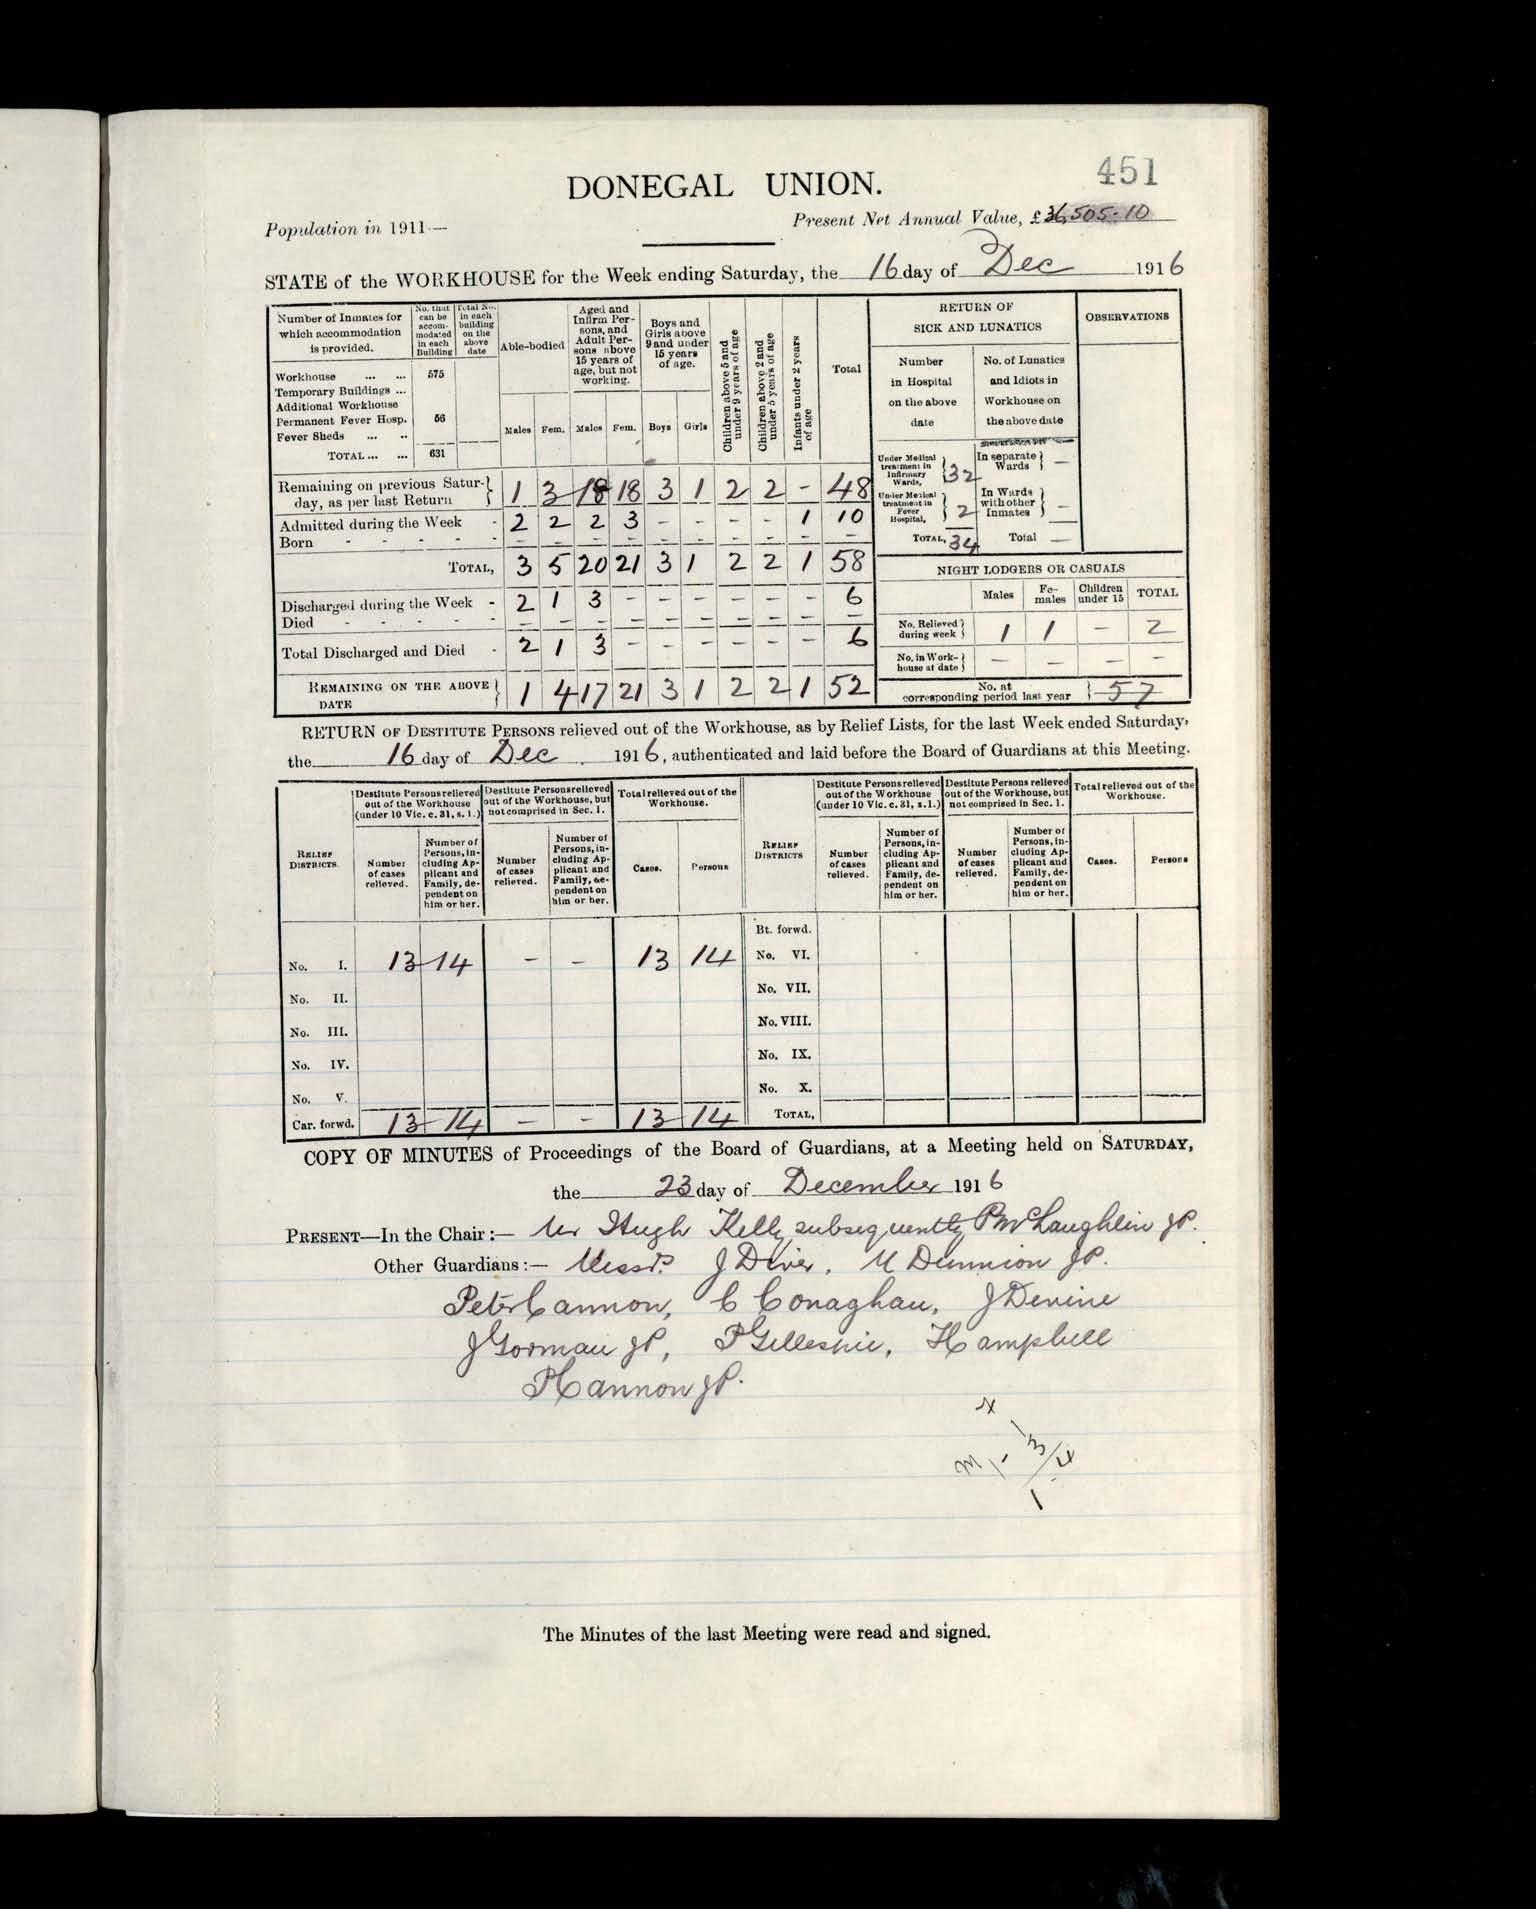 451
DONEGAL UNION.
Population in 1911—
Present Net Annual Value, £36,505-10
STATE of the WORKHOUSE for the Week ending Saturday, the 16 day of Dec 1916
Number of Inmates for which accommodation is provided.
No. that can be accommodated in each Building
Total No. in each building on the above date
Able-bodied
Aged and Infirm Persons, and Adult Persons above 15 years of age, but not working.
Boys and Girls above 9 and under 15 years of age.
Children above 5 and under 9 years of age
Children above 2 and under 5 years of age
Infants under 2 years of age
Total
RETURN OF SICK AND LUNATICS
OBSERVATIONS
Workhouse ... ... 575
Temporary Buildings ...
Additional Workhouse
Permanent Fever Hosp. 56
Fever Sheds ... ..
TOTAL ... ... 631
Males Fem. Males Fem. Boys Girls
Number in Hospital on the above date
No. of Lunatics and Idiots in Workhouse on the above date
Remaining on previous Saturday, as per last Return } 1 3 18 18 3 1 2 2 - 48
Admitted during the Week - 2 2 2 3 - - - - 1 10
Born - - - - - - - - - - - - - - -
TOTAL, 3 5 20 21 3 1 2 2 1 58
Discharged during the Week - 2 1 3 - - - - - - 6
Died - - - - - - - - - - - - - - -
Total Discharged and Died - 2 1 3 - - - - - - 6
REMAINING ON THE ABOVE DATE } 1 4 17 21 3 1 2 2 1 52
Under Medical treatment in Infirmary Wards, } { 32
In separate Wards } —
Under Medical treatment in Fever Hospital, } { 2
In Wards with other Inmates } —
TOTAL, 34 Total —
NIGHT LODGERS OR CASUALS
Males Females Children under 15 TOTAL
No. Relieved during week } 1 1 — 2
No. in Workhouse at date } — — — —
No. at corresponding period last year } 57
RETURN OF DESTITUTE PERSONS relieved out of the Workhouse, as by Relief Lists, for the last Week ended Saturday,
the 16 day of Dec. 1916, authenticated and laid before the Board of Guardians at this Meeting.
RELIEF DISTRICTS.
Destitute Persons relieved out of the Workhouse (under 10 Vic. c. 31, s. 1.)
Destitute Persons relieved out of the Workhouse, but not comprised in Sec. 1.
Total relieved out of the Workhouse.
RELIEF DISTRICTS
Destitute Persons relieved out of the Workhouse (under 10 Vic. c. 31, s. 1.)
Destitute Persons relieved out of the Workhouse, but not comprised in Sec. 1.
Total relieved out of the Workhouse.
Number of cases relieved.
Number of Persons, including Applicant and Family, dependent on him or her.
Number of cases relieved.
Number of Persons, including Applicant and Family, dependent on him or her.
Cases.
Persons
Number of cases relieved.
Number of Persons, including Applicant and Family, dependent on him or her.
Number of cases relieved.
Number of Persons, including Applicant and Family, dependent on him or her.
Cases.
Persons
Bt. forwd.
No. I. 13 14 — — 13 14 No. VI.
No. II. No. VII.
No. III. No. VIII.
No. IV. No. IX.
No. V. No. X.
Car. forwd. 13 14 — — 13 14 TOTAL,
COPY OF MINUTES of Proceedings of the Board of Guardians, at a Meeting held on SATURDAY,
the 23 day of December 1916
PRESENT—In the Chair :— Mr Hugh Kelly subsequently P McLaughlin JP.
Other Guardians :— Messrs J Diver, M Dunnion JP.
Peter Cannon, C Conaghan, J Devine
J Gorman JP, P Gillespie, H Campbell
P Cannon JP.
The Minutes of the last Meeting were read and signed.